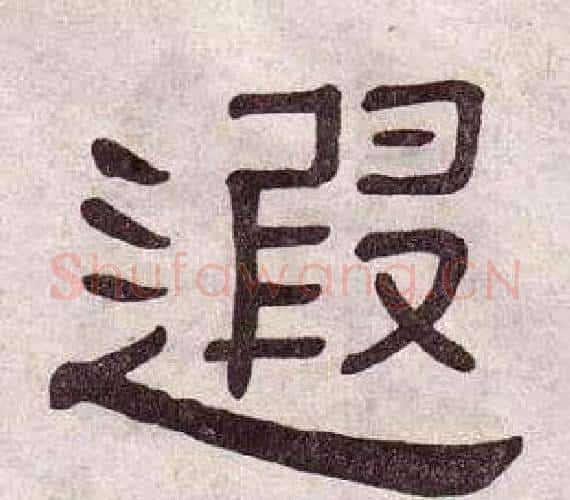 遐
Shufawang.CN